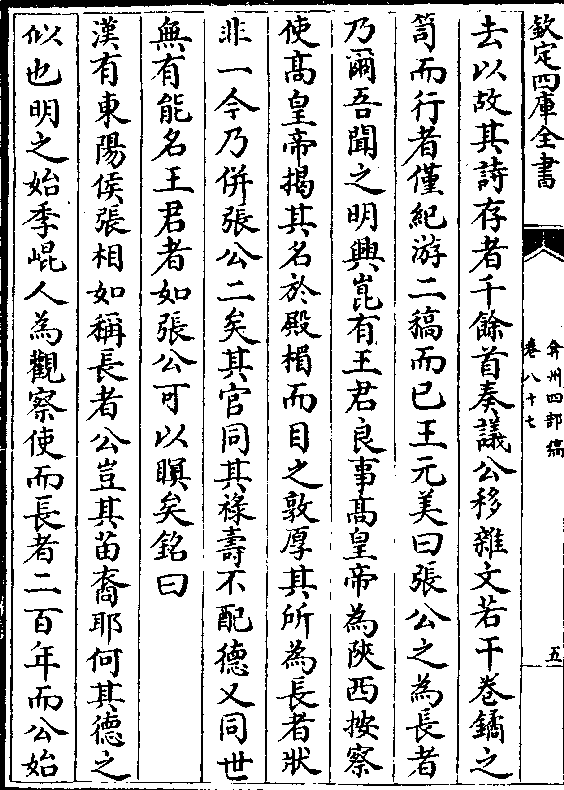 欽定四庫全書
弇州四部稿
卷八十七
五
去以故其詩存者千餘首奏議公移雜文若干卷鐍之
笥而行者僅紀游二稿而已王元美曰張公之為長者
乃爾吾聞之明興崑有王君良事髙皇帝為陜西按察
使髙皇帝揭其名於殿楣而目之敦厚其所為長者狀
非一今乃併張公二矣其官同其祿壽不配德又同世
無有能名王君者如張公可以瞑矣銘曰
漢有東陽侯張相如稱長者公豈其苗裔耶何其德之
似也明之始季崐人為觀察使而長者二百年而公始